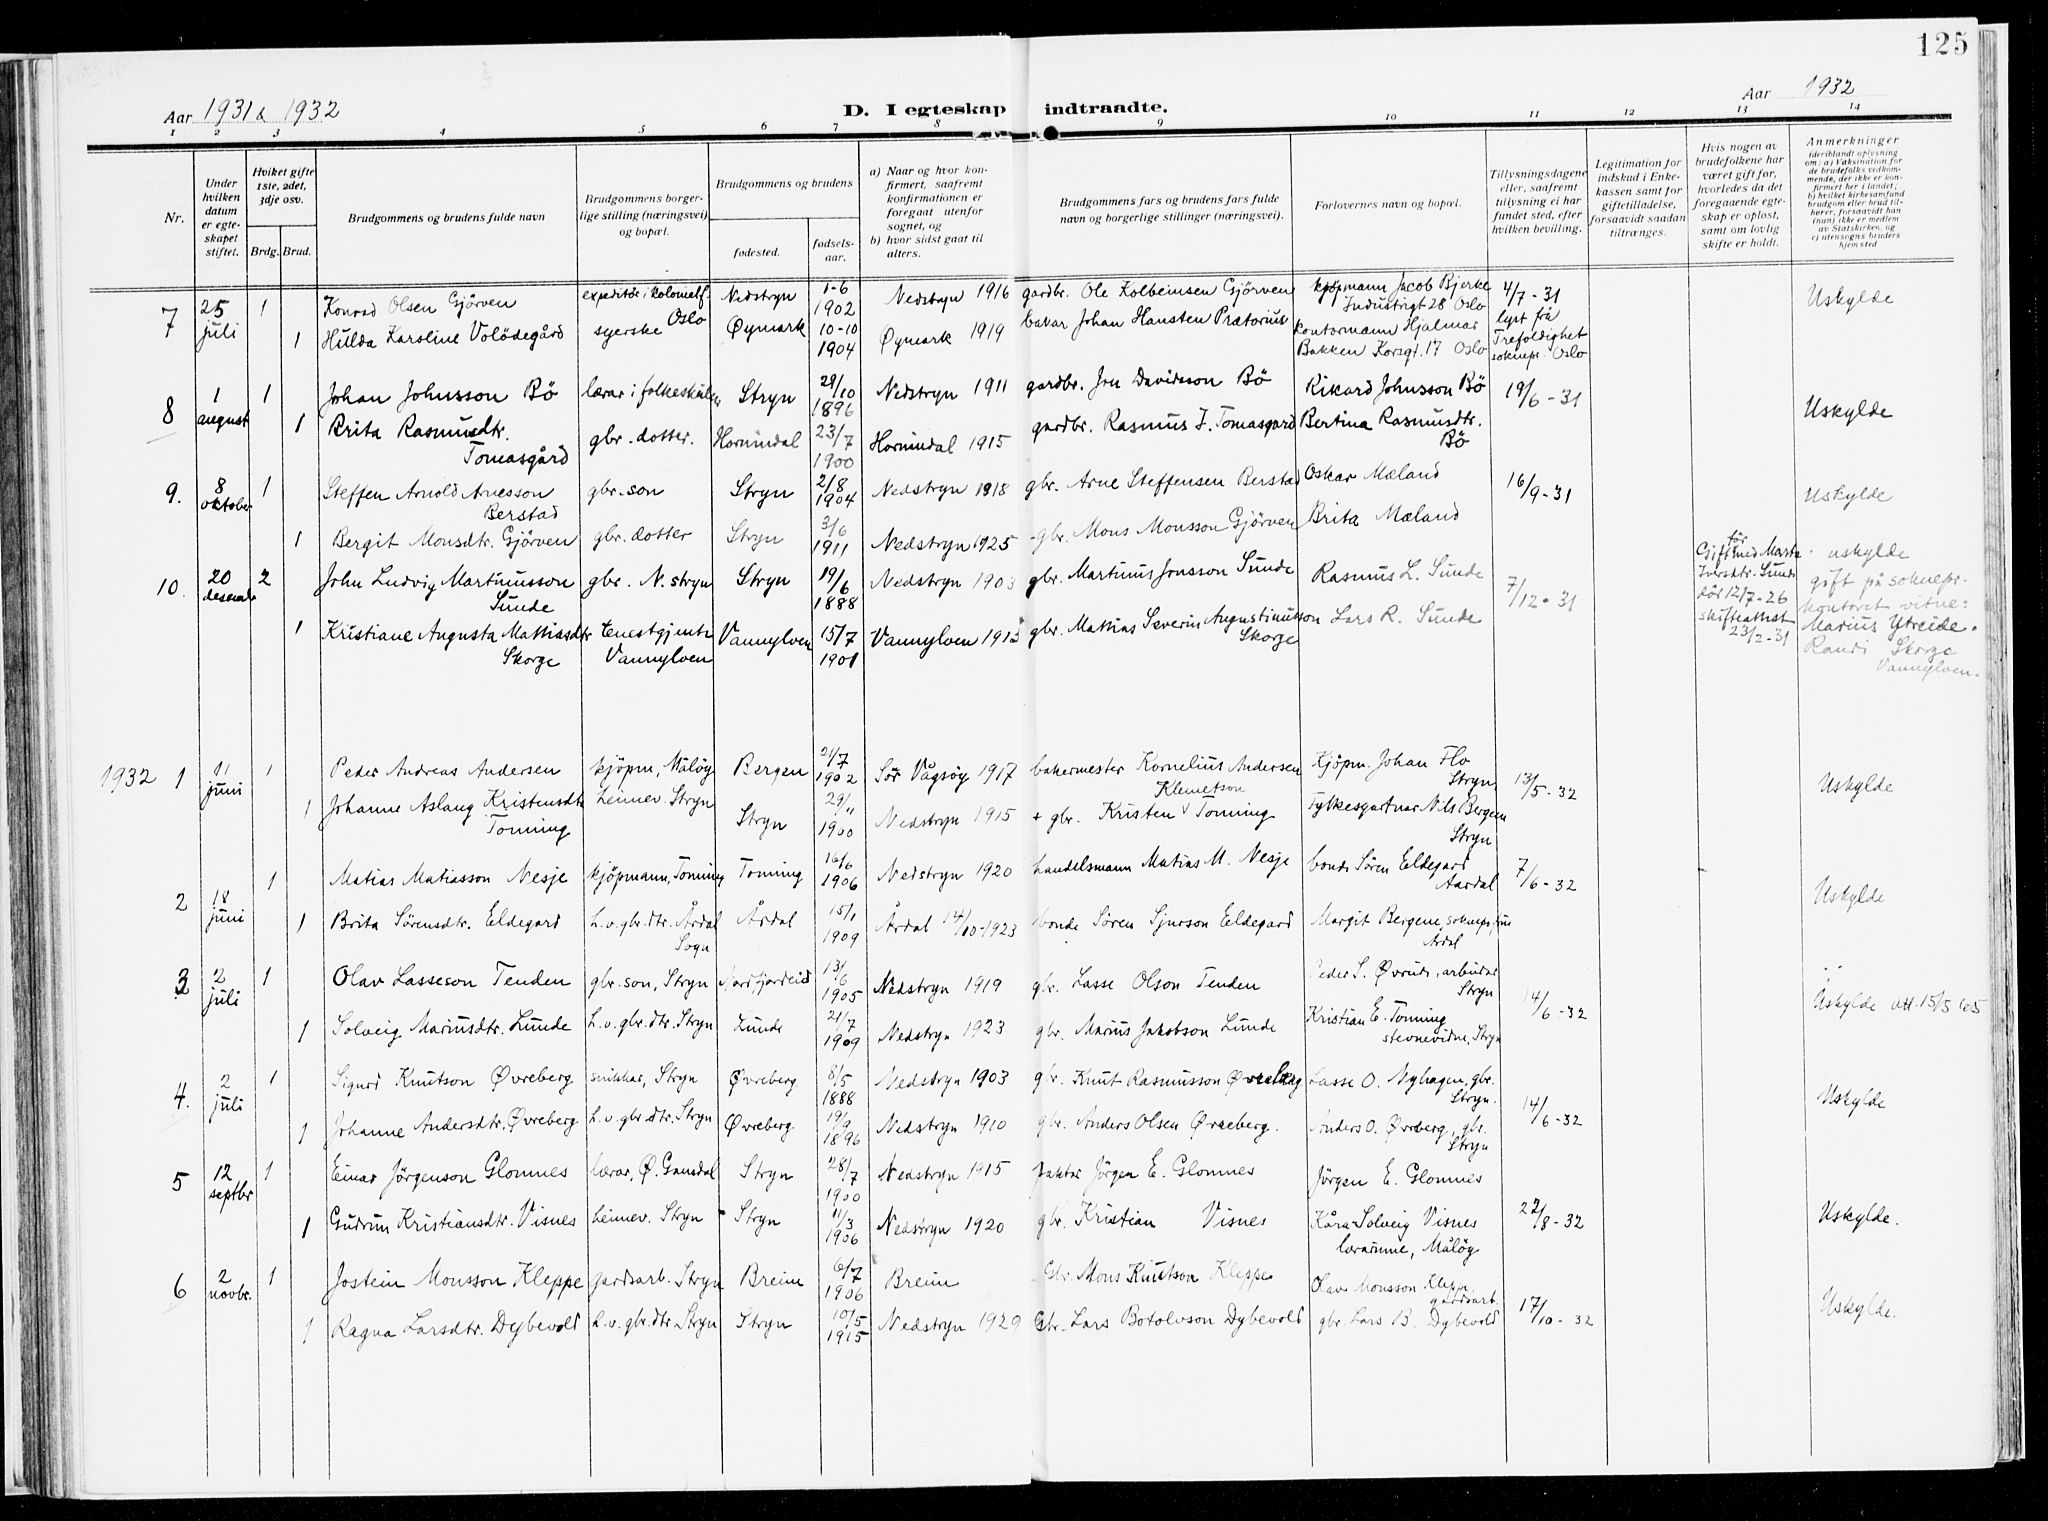 125
Aar 1931 & 1932
D. I egteskap indtraadte.
Aar 1932
1 2 3 4 5 6 7 8 9 10 11 12 13 14
Nr.
Under hvilken datum er egteskapet stiftet.
Hviket gifte 1ste, 2det, 3dje osv.
Brdg. Brud.
Brudgommens og brudens fulde navn
Brudgommens borgerlige stilling (næringsvei) og bopæl.
Brudgommens og brudens
fødested.
fødselsaar.
a) Naar og hvor konfirmert, saafremt konfirmationen er foregaat utenfor sognet, og
b) hvor sidst gaat til alters.
Brudgommens fars og brudens fars fulde navn og borgerlige stillinger (næringsvei).
Forlovernes navn og bopæl.
Tillysningsdagene eller, saafremt tillysning ei har fundet sted, efter hvilken bevilling.
Legitimation for indskud i Enkekassen samt for giftetilladelse, forsaavidt saadan tiltrænges.
Hvis nogen av brudefolkene har været gift før, hvorledes da det foregaaende egteskap er opløst, samt om lovlig skifte er holdt.
Anmerkninger
(deriblandt oplysning om: a) Vaksination for de brudefolks vedkommende, der ikke er konfirmert her i landet; b) hvilket kirkesamfund brudgom eller brud tilhører, forsaavidt han (hun) ikke er medlem av Statskirken, og c) utensogns bruders hjemsted
7 25 juli 1 Konrad Olsen Gjörven expeditör i kolonialf. Oslo Nedstryn 1-6 1902 Nedstryn 1916 gardbr. Ole Kolbeinsen Gjörven kjøpmann Jacob Bjerke Industrigt 28 Oslo 4/7-31 lyst frå Trefoldighet soknepr. Oslo Uskylde
1 Hulda Karoline Volödegård syerske Øymark 10-10 1904 Øymark 1919 bakar Johan Hansten Prætorius kontormann Hjalmar Bakken Korsgt. 17 Oslo
8 1 august 1 Johan Johnsson Bö lærar i folkeskulen Stryn 29/10 1896 Nedstryn 1911 gardbr. Jon Davidsson Bö Rikard Johnsson Bö 19/6-31 Uskylde
1 Brita Rasmusdtr. Tomasgård gbr. dotter. Hornindal 23/7 1900 Hornindal 1915 gardbr. Rasmus J. Tomasgard Bertina Rasmusdtr. Bö
9. 8 oktober 1 Steffen Arnold Arnesson Berstad gbr. son Stryn 2/8 1904 Nedstryn 1918 gbr. Arne Steffensen Berstad Oskar Mæland 16/9-31 Uskylde
1 Bergit Monsdtr. Gjörven gbr. dotter Stryn 3/6 1911 Nedstryn 1925 gbr. Mons Monsson Gjörven Brita Mæland
10. 20 desembr 2 John Ludvig Martinusson Sunde gbr. N. stryn Stryn 19/6 1888 Nedstryn 1903 gbr. Martinus Jonsson Sunde Rasmus L. Sunde 7/12-31 Gift för med Marta Iversdtr. Sunde död 12/7-26 skifteattest 23/2-31 uskylde gift på soknepr. kontoret vitne: Marius Ytreide. Randi Skorge Vannylven.
1 Kristiane Augusta Mattiasdtr Skorge tenestgjente Vannylven Vannylven 15/7 1901 Vannylven 1915 gbr. Mattias Severin Augustinusson Skorge Lars R. Sunde
1932 1 11 juni 1 Peder Andreas Andersen kjöpm, Måløy Bergen 21/7 1902 Sör Vågsöy 1917 bakermester Kornelius Andersen Kjöpm. Johan Flo Stryn 13/5-32 Uskylde
1 Johanne Aslaug Kristensdtr Tonning heimev. Stryn Stryn 29/11 1900 Nedstryn 1915 + gbr. Kristen Klemetson Tonning Fylkesgartnar Nils Bergem Stryn
2 18 juni 1 Matias Matiasson Nesje kjöpmann, Tonning Tonning 16/6 1906 Nedstryn 1920 handelsmann Matias M. Nesje bonde Sören Eldegard Aardal 7/6-32 Uskylde
1 Brita Sörensdtr. Eldegard h.v. gbr. dtr. Årdal Sogn Årdal 15/1 1909 Årdal 14/10-1923 bonde Sören Sjurson Eldegard Margit Bergene, Årdal
3 2 juli 1 Olav Lasseson Tenden gbr. son, Stryn Nordfjordeid 13/6 1905 Nedstryn 1919 gbr. Lasse Olson Tenden Peder S. Øvrud, arbeidar Stryn 14/6-32 Uskylde
1 Solveig Mariusdtr. Lunde h.v. gbr. dtr. Stryn Lunde 21/7 1909 Nedstryn 1923 gbr. Marius Jakobson Lunde Kristian E. Tonning stevnevidne, Stryn
4. 2 juli 1 Sigurd Knutson Øvreberg snikkar, Stryn Øvreberg 8/5 1888 Nedstryn 1903 gbr. Knut Rasmusson Øvreberg Lasse O. Nyhagen, gbr. Stryn. 14/6-32 Uskylde
1 Johanne Andersdtr. Øvreberg h.v. gbr. dtr. Stryn Øvreberg 19/9 1896 Nedstryn 1910 gbr. Anders Olsen Øvreberg. Anders O. Øvreberg, gbr. Stryn
5 12 septbr 1 Einar Jörgenson Glomnes lærar, Ø. Gausdal Stryn 28/7 1900 Nedstryn 1915 Jörgen E. Glomnes Jörgen E. Glomnes 22/8-32 Uskylde.
1 Gudrun Kristiansdtr. Visnes heimev. Stryn Stryn 11/3 1906 Nedstryn 1920 gbr. Kristian Visnes Kåra Solveig Visnes lærarinne, Målöy
6 2 novbr. 1 Jostein Monsson Kleppe gardsarb. Stryn Breim 6/7 1906 Breim Gbr. Mons Knutson Kleppe Olav Monsson Kleppe gardsarb. 17/10-32 Uskylde.
1 Ragna Larsdtr. Dybevold h.v. gbr. dtr. Stryn Stryn 10/5 1915 Nedstryn 1929 Gbr. Lars Botolvson Dybevold gbr. Lars B. Dybevold